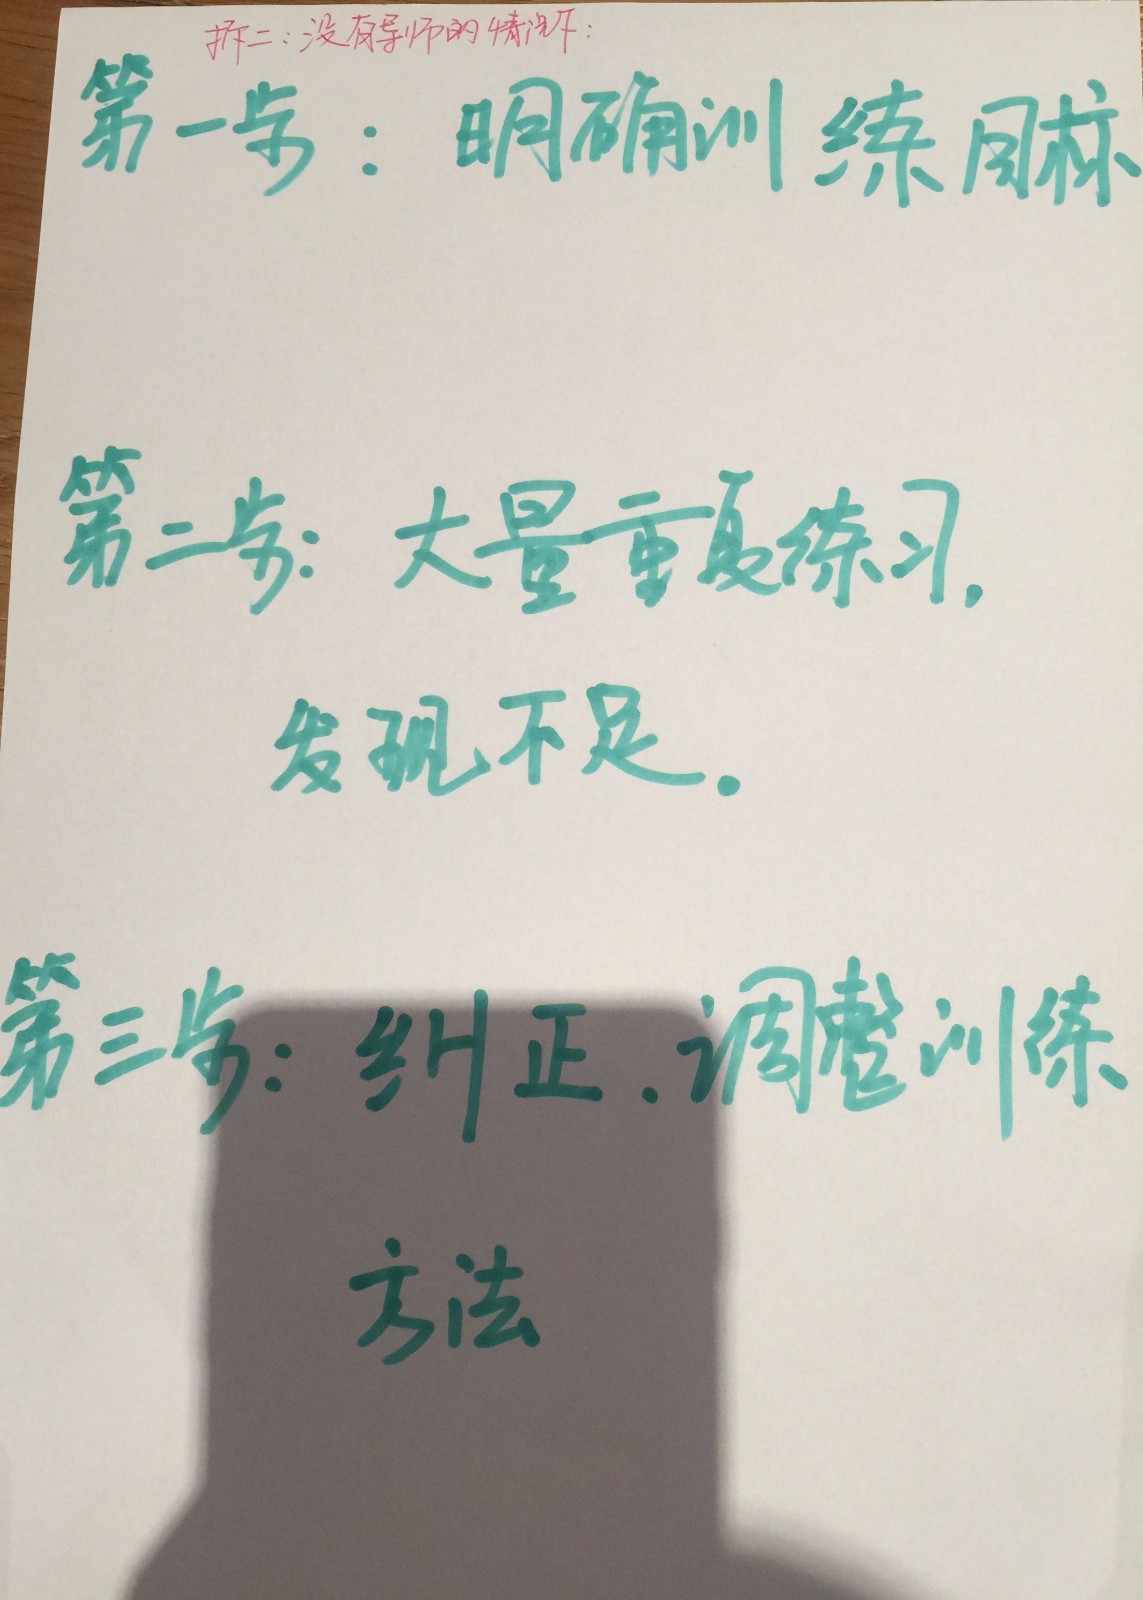 拆二：没有导师的情况下：
第一步：明确训练目标
第二步：大量重复练习，
发现不足.
第三步：纠正.调整训练
方法